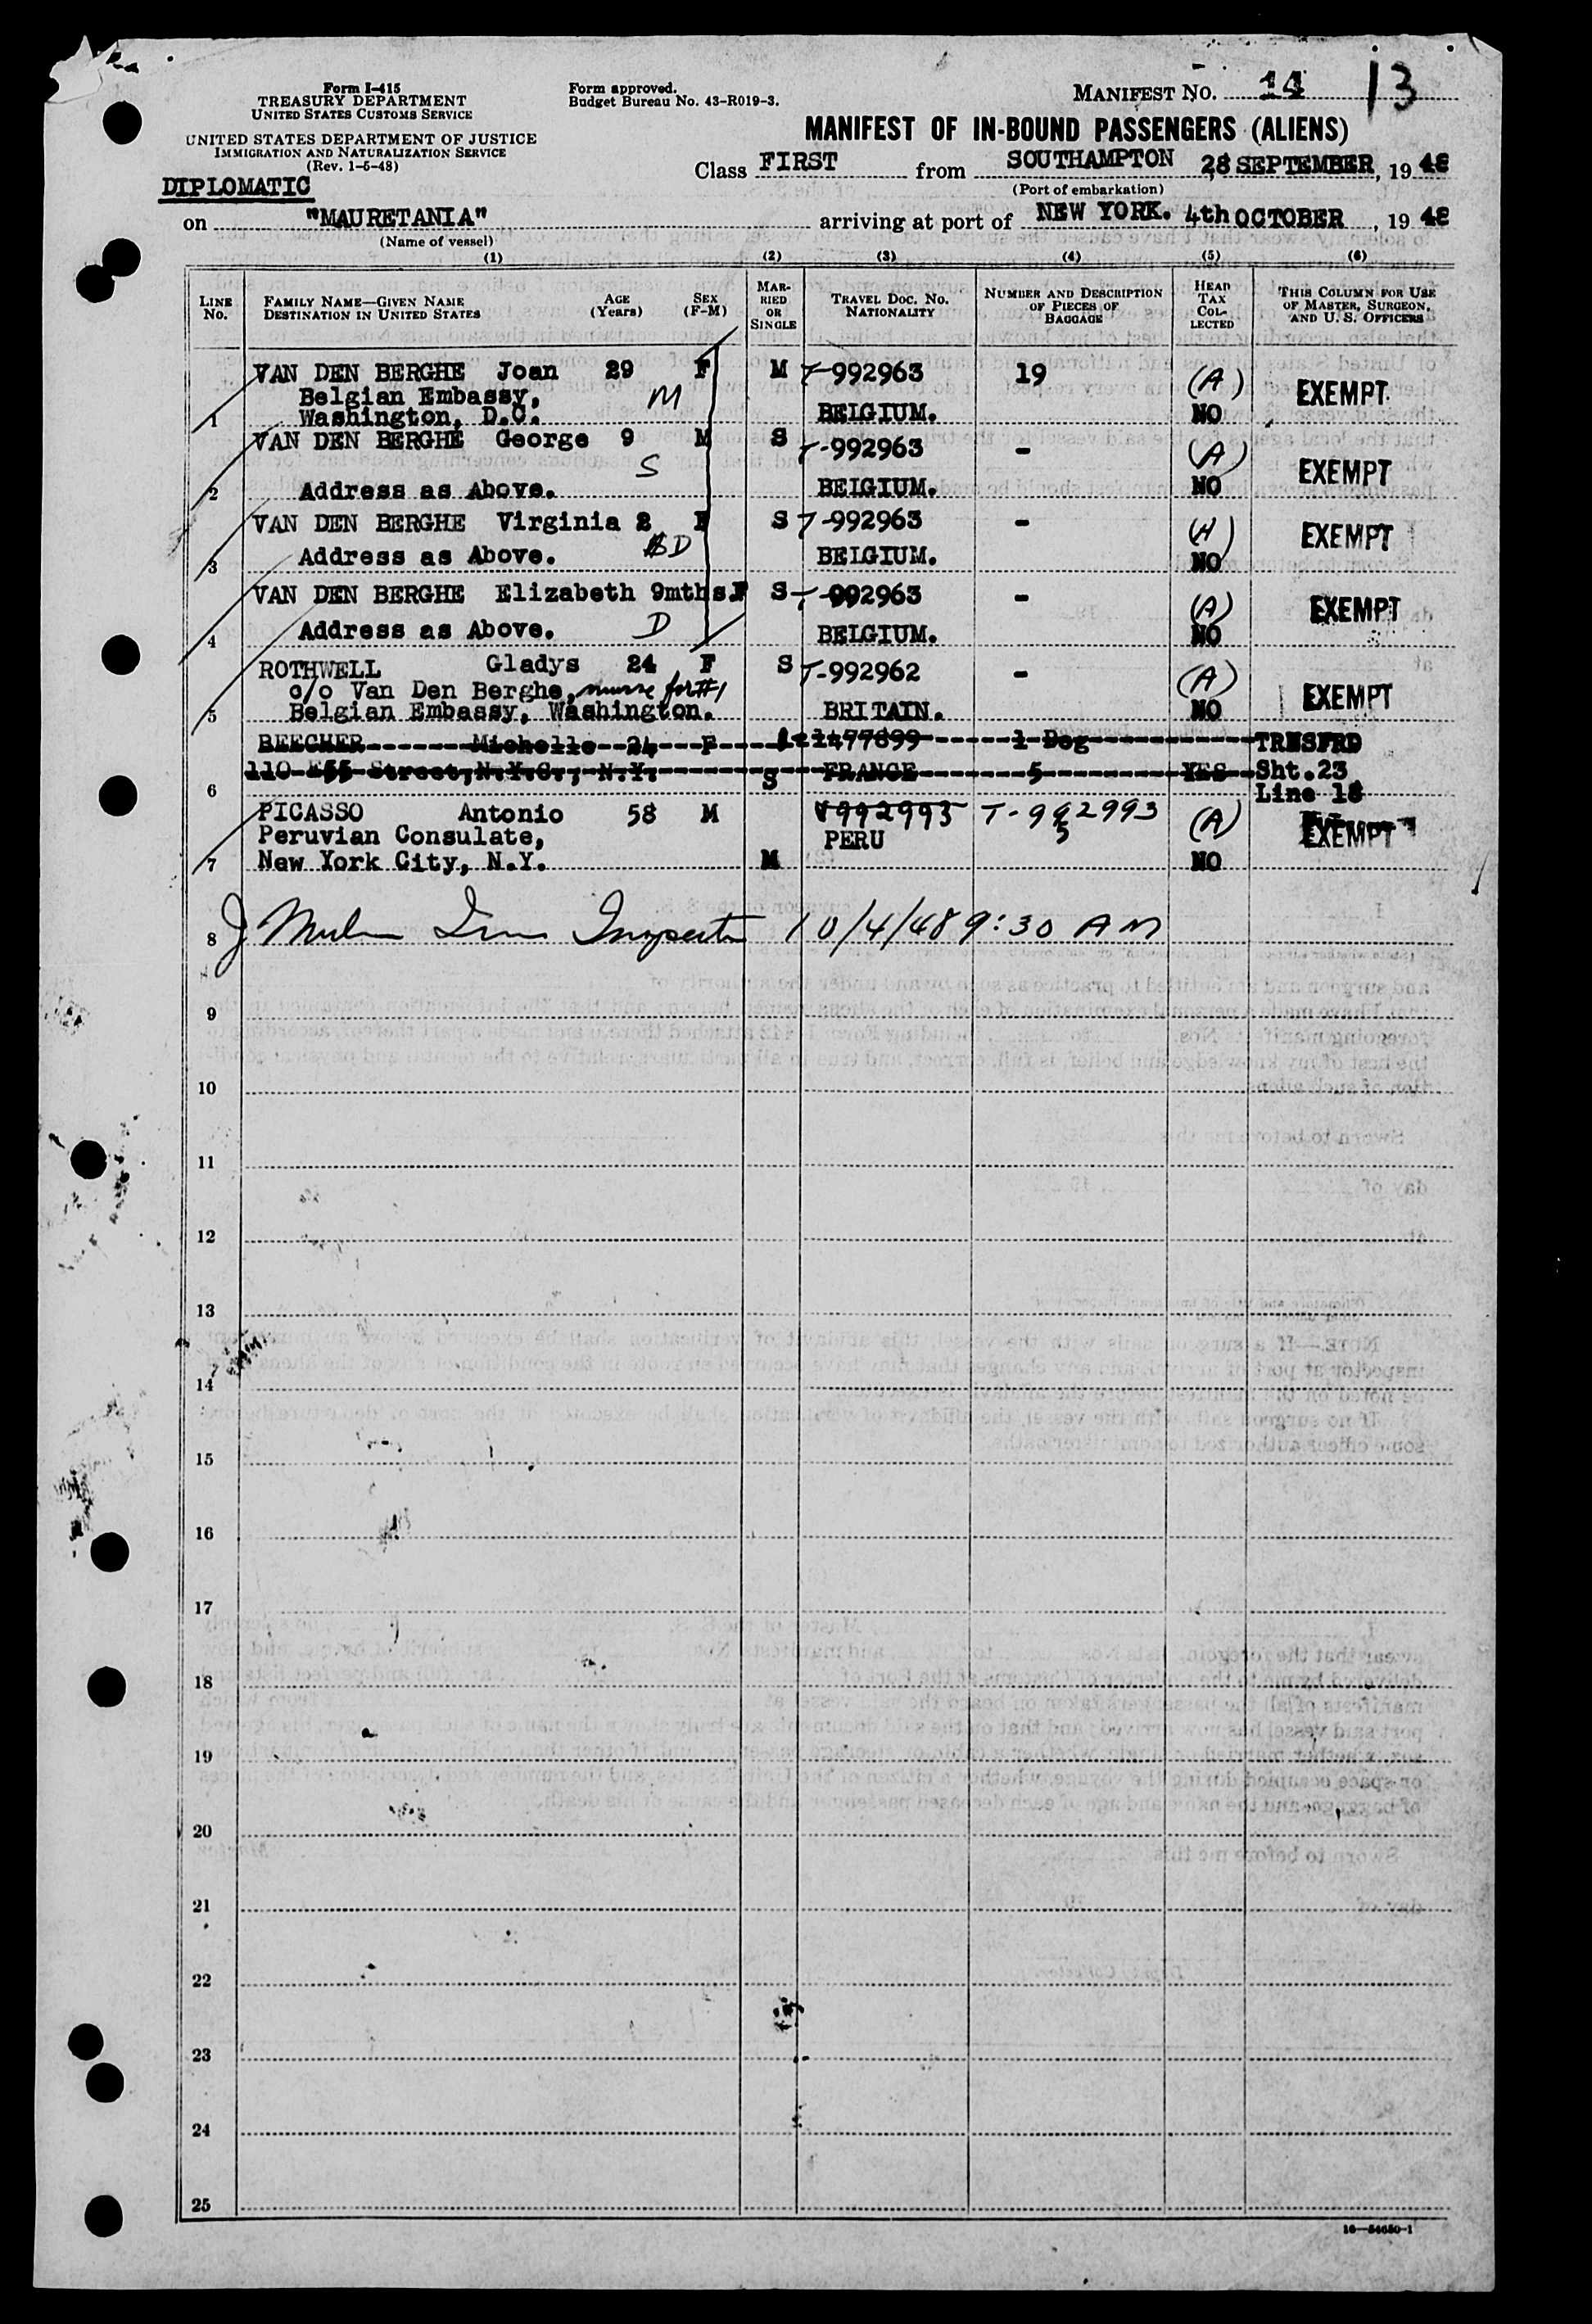 Form I-415
TREASURY DEPARTMENT
UNITED STATES CUSTOMS SERVICE
UNITED STATES DEPARTMENT OF JUSTICE
IMMIGRATION AND NATURALIZATION SERVICE
(Rev. 1-5-48)
Form approved.
Budget Bureau No. 43-R019-3.
MANIFEST NO. 14 13
MANIFEST OF IN-BOUND PASSENGERS (ALIENS)
DIPLOMATIC
Class FIRST from SOUTHAMPTON 28 SEPTEMBER, 1948
(Port of embarkation)
on "MAURETANIA" arriving at port of NEW YORK. 4th OCTOBER, 1948
(Name of vessel)
(1) (2) (3) (4) (5) (6)
LINE NO.
FAMILY NAME—GIVEN NAME
DESTINATION IN UNITED STATES
AGE (Years)
SEX (F-M)
MARRIED OR SINGLE
TRAVEL DOC. NO. NATIONALITY
NUMBER AND DESCRIPTION OF PIECES OF BAGGAGE
HEAD TAX COLLECTED
THIS COLUMN FOR USE OF MASTER, SURGEON, AND U. S. OFFICERS
VAN DEN BERGHE Joan 29 F M T-992963 19 (A) EXEMPT
Belgian Embassy, M
1 Washington, D.C. BELGIUM. NO
VAN DEN BERGHE George 9 M S T-992963 - (A) EXEMPT
S
2 Address as Above. BELGIUM. NO
VAN DEN BERGHE Virginia 2 F S T-992963 - (A) EXEMPT
3 Address as Above. D BELGIUM. NO
VAN DEN BERGHE Elizabeth 9mths. F S T-992963 - (A) EXEMPT
4 Address as Above. D BELGIUM. NO
ROTHWELL Gladys 24 F S T-992962 - (A) EXEMPT
c/o Van Den Berghe, nurse for #1
5 Belgian Embassy, Washington. BRITAIN. NO
BEECHER Michelle 24 F 1477899 1 Dog TRNSFRD
110 E55 Street, N.Y.C., N.Y. S FRANCE 5 YES Sht.23
6 Line 18
PICASSO Antonio 58 M V992993 T-992993 (A) EXEMPT
Peruvian Consulate, PERU 5
7 New York City, N.Y. M NO
8 Inspector 10/4/48 9:30 AM
9
10
11
12
13
14
15
16
17
18
19
20
21
22
23
24
25
16—54650-1